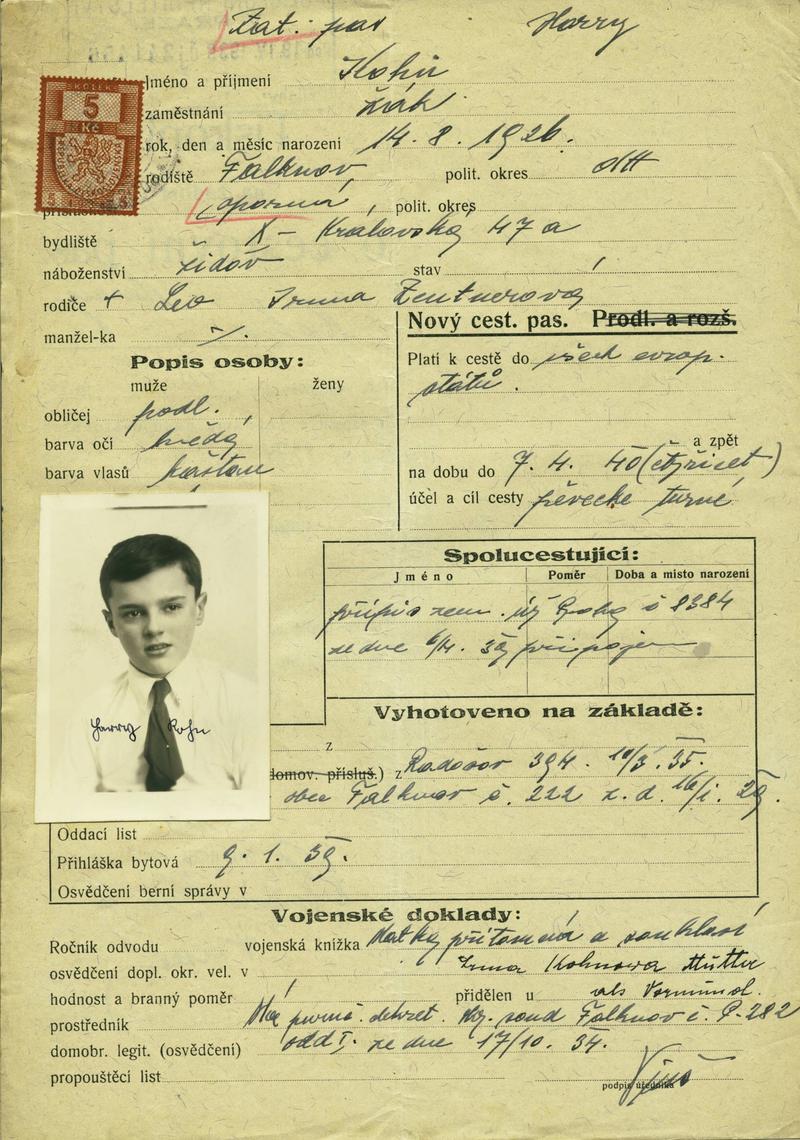 Zat. pas Harry
Jméno a příjmení Kohn
zaměstnání žák
rok, den a měsíc narození 14. 8. 1926.
rodiště Falknov, polit. okres dtt
polit. okres
bydliště X – Kralovská 47 a
náboženství židov stav /
rodiče + Leo Irma Zentnerová
manžel-ka /.
KOLEK
5
Kč
Nový cest. pas. Prodl. a rozš.
Popis osoby:
muže ženy
obličej podl.
barva očí hnědá
barva vlasů kaštan
Platí k cestě do všech evrop.
států.
a zpět
na dobu do 7. 4. 40 (čtyřicet)
účel a cíl cesty pěvecké turné
Spolucestující:
Jméno Poměr Doba a místo narození
přípis zem. úř Prahy č 8384
ze dne 6/4. 39 připojen
Harry Kohn
Vyhotoveno na základě:
z
domov. přísluš.) z 394. 10/3. 35.
obce Falknov č. 222 z. d. 16/1. 29.
Oddací list
Přihláška bytová 9. 1. 39.
Osvědčení berní správy v
Vojenské doklady:
Ročník odvodu vojenská knížka Matka přítomná a souhlasí
osvědčení dopl. okr. vel. v Irma Kohnowa Mutter
hodnost a branný poměr / přidělen u als Vormünd.
prostředník dekret. okr. soud Falknov č. P-282
domobr. legit. (osvědčení) odd I. ze dne 17/10. 34.
propouštěcí list
podpis úředníka